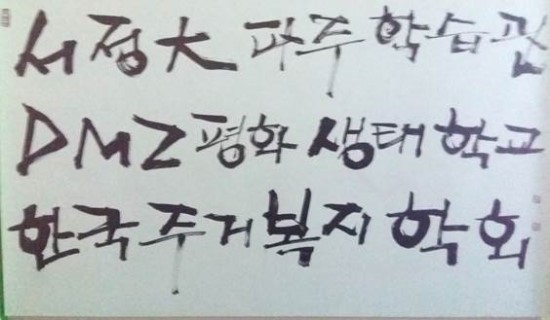 서정大 파주학습관
DMZ평화생태학교
한국주거복지학회